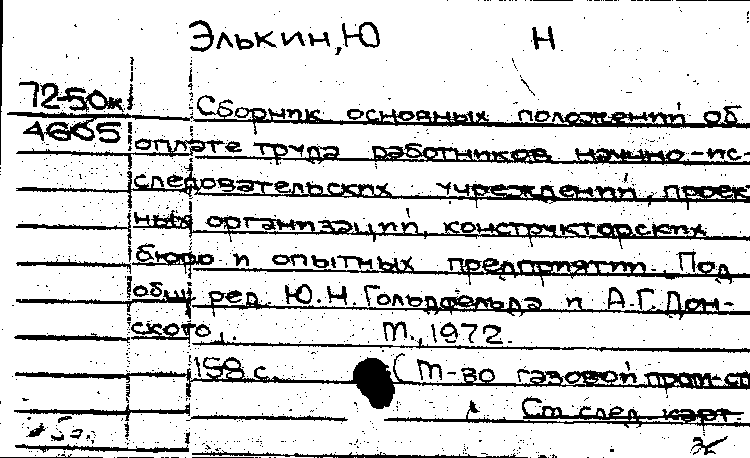 Элькин, Ю Н
72-50к
4665
Сборник основных положений об
оплате труда работников научно-ис-
следовательских учреждений, проек
ных организаций, конструкторских
бюро и опытных предприятий. Под
общ ред. Ю.Н. Гольдфельда и А.Г. Дон-
ского.
М., 1972.
158 с. (М-во газовой пром-ст
См след карт.